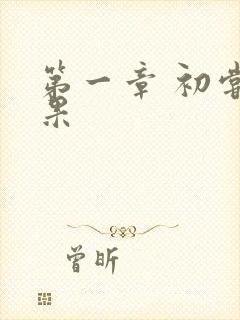 第一章 初尝
果
曾昕